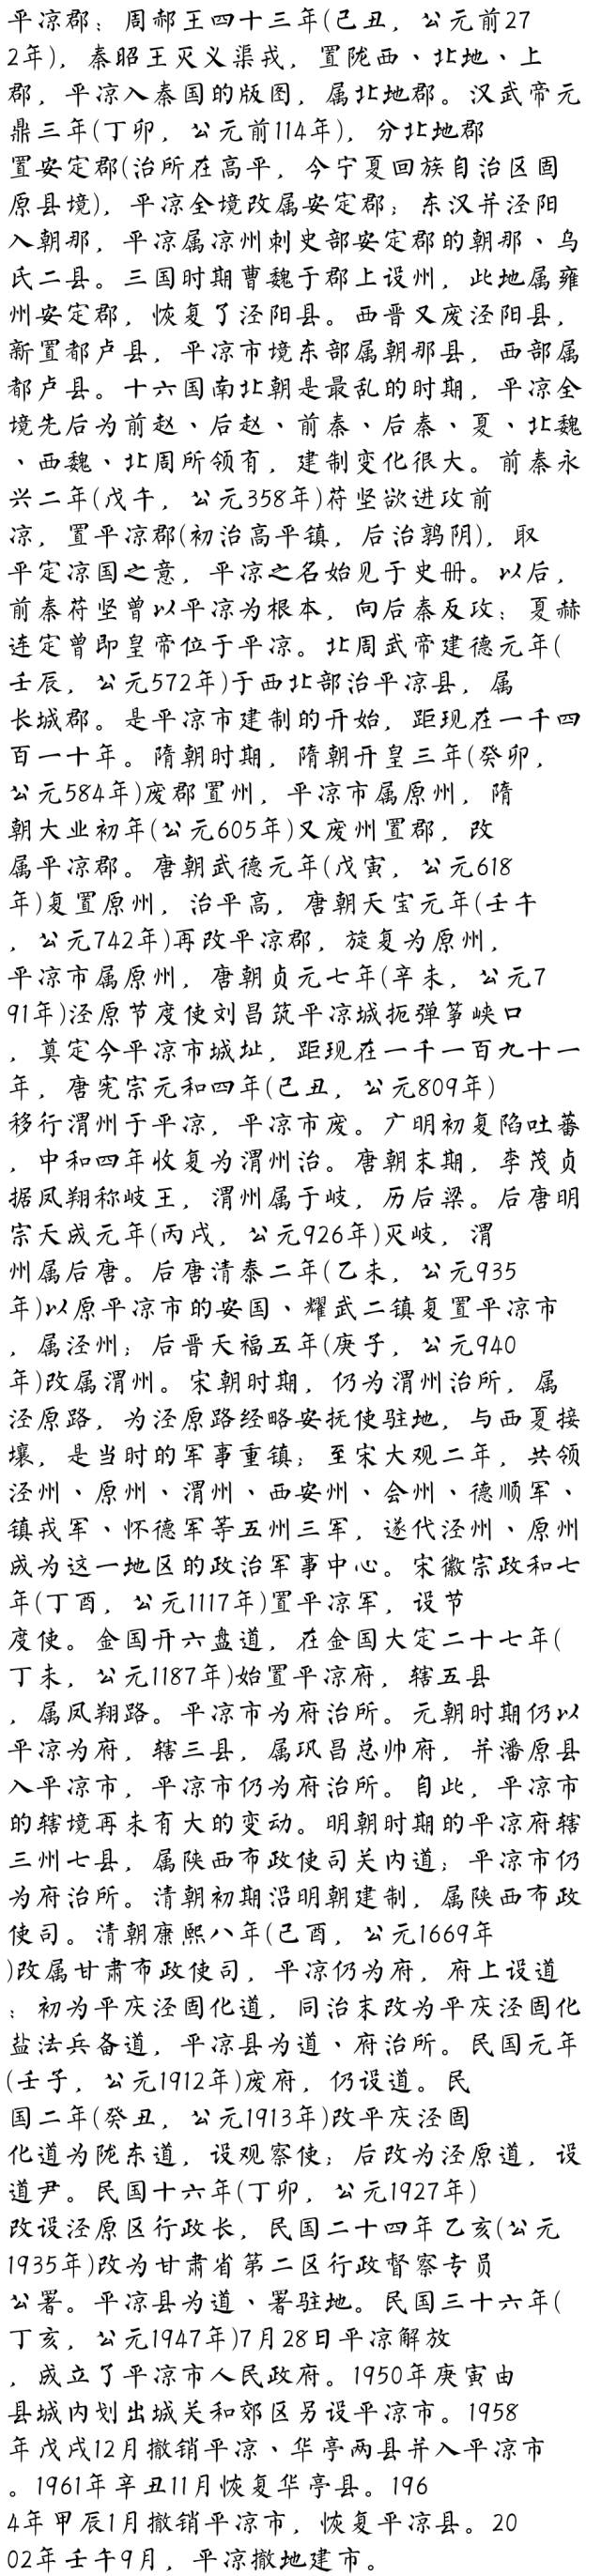 平凉郡：周郝王四十三年(己丑，公元前27
2年)，秦昭王灭义渠戎，置陇西、北地、上
郡，平凉入秦国的版图，属北地郡。汉武帝元
鼎三年(丁卯，公元前114年)，分北地郡
置安定郡(治所在高平，今宁夏回族自治区固
原县境)，平凉全境改属安定郡；东汉并泾阳
入朝那，平凉属凉州刺史部安定郡的朝那、乌
氏二县。三国时期曹魏于郡上设州，此地属雍
州安定郡，恢复了泾阳县。西晋又废泾阳县，
新置都卢县，平凉市境东部属朝那县，西部属
都卢县。十六国南北朝是最乱的时期，平凉全
境先后为前赵、后赵、前秦、后秦、夏、北魏
、西魏、北周所领有，建制变化很大。前秦永
兴二年(戊午，公元358年)苻坚欲进攻前
凉，置平凉郡(初治高平镇，后治鹑阴)，取
平定凉国之意，平凉之名始见于史册。以后，
前秦苻坚曾以平凉为根本，向后秦反攻；夏赫
连定曾即皇帝位于平凉。北周武帝建德元年(
壬辰，公元572年)于西北部治平凉县，属
长城郡。是平凉市建制的开始，距现在一千四
百一十年。隋朝时期，隋朝开皇三年(癸卯，
公元584年)废郡置州，平凉市属原州，隋
朝大业初年(公元605年)又废州置郡，改
属平凉郡。唐朝武德元年(戊寅，公元618
年)复置原州，治平高，唐朝天宝元年(壬午
，公元742年)再改平凉郡，旋复为原州，
平凉市属原州，唐朝贞元七年(辛未，公元7
91年)泾原节度使刘昌筑平凉城扼弹筝峡口
，奠定今平凉市城址，距现在一千一百九十一
年，唐宪宗元和四年(己丑，公元809年)
移行渭州于平凉，平凉市废。广明初复陷吐蕃
，中和四年收复为渭州治。唐朝末期，李茂贞
据凤翔称岐王，渭州属于岐，历后梁。后唐明
宗天成元年(丙戌，公元926年)灭岐，渭
州属后唐。后唐清泰二年(乙未，公元935
年)以原平凉市的安国、耀武二镇复置平凉市
，属泾州；后晋天福五年(庚子，公元940
年)改属渭州。宋朝时期，仍为渭州治所，属
泾原路，为泾原路经略安抚使驻地，与西夏接
壤，是当时的军事重镇；至宋大观二年，共领
泾州、原州、渭州、西安州、会州、德顺军、
镇戎军、怀德军等五州三军，遂代泾州、原州
成为这一地区的政治军事中心。宋徽宗政和七
年(丁酉，公元1117年)置平凉军，设节
度使。金国开六盘道，在金国大定二十七年(
丁未，公元1187年)始置平凉府，辖五县
，属凤翔路。平凉市为府治所。元朝时期仍以
平凉为府，辖三县，属巩昌总帅府，并潘原县
入平凉市，平凉市仍为府治所。自此，平凉市
的辖境再未有大的变动。明朝时期的平凉府辖
三州七县，属陕西布政使司关内道；平凉市仍
为府治所。清朝初期沿明朝建制，属陕西布政
使司。清朝康熙八年(己酉，公元1669年
)改属甘肃布政使司，平凉仍为府，府上设道
；初为平庆泾固化道，同治末改为平庆泾固化
盐法兵备道，平凉县为道、府治所。民国元年
(壬子，公元1912年)废府，仍设道。民
国二年(癸丑，公元1913年)改平庆泾固
化道为陇东道，设观察使；后改为泾原道，设
道尹。民国十六年(丁卯，公元1927年)
改设泾原区行政长，民国二十四年乙亥(公元
1935年)改为甘肃省第二区行政督察专员
公署。平凉县为道、署驻地。民国三十六年(
丁亥，公元1947年)7月28日平凉解放
，成立了平凉市人民政府。1950年庚寅由
县城内划出城关和郊区另设平凉市。1958
年戊戌12月撤销平凉、华亭两县并入平凉市
。1961年辛丑11月恢复华亭县。196
4年甲辰1月撤销平凉市，恢复平凉县。20
02年壬午9月，平凉撤地建市。